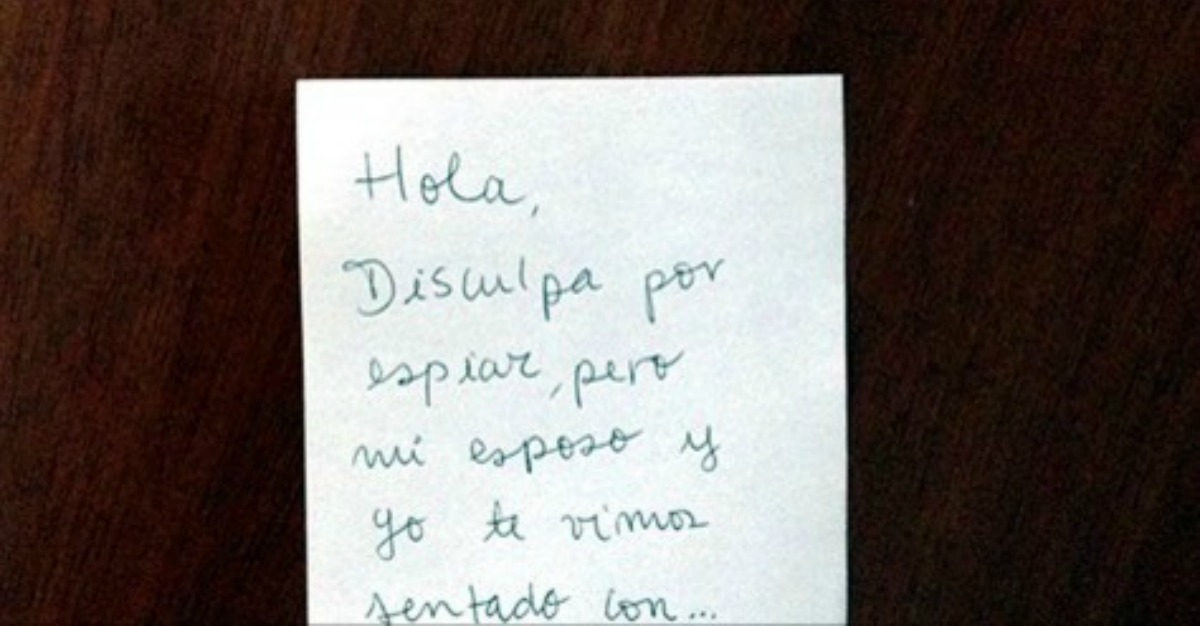 Hola,
Disculpa por
espiar, pero
mi esposo y
yo te vimos
sentado con...